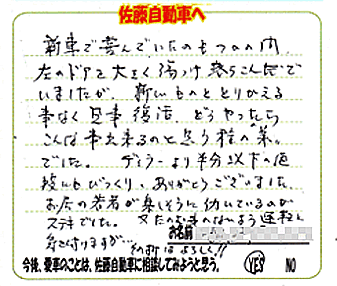 佐藤自動車へ
新車で喜んでいたのもつかの間
左のドアを大きく傷つけ落ちこんで
いましたが、新しいものととりかえる
事なく見事復活、どうやったら
こんな事出来るのと思う程の業。
でした。ディラーより半分以下の価
格にもびっくり。ありがとうございました。
お店の若者が楽しそうに働いているのが
ステキでした。又たのお事のないよう運転に
気を付けますが…その折はよろしく!!
お名前
今後、愛車のことは、佐藤自動車に相談してみようと思う。 YES NO